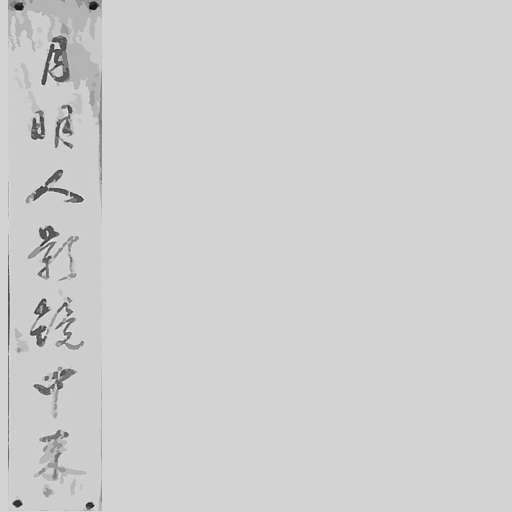 月明人影镜中来